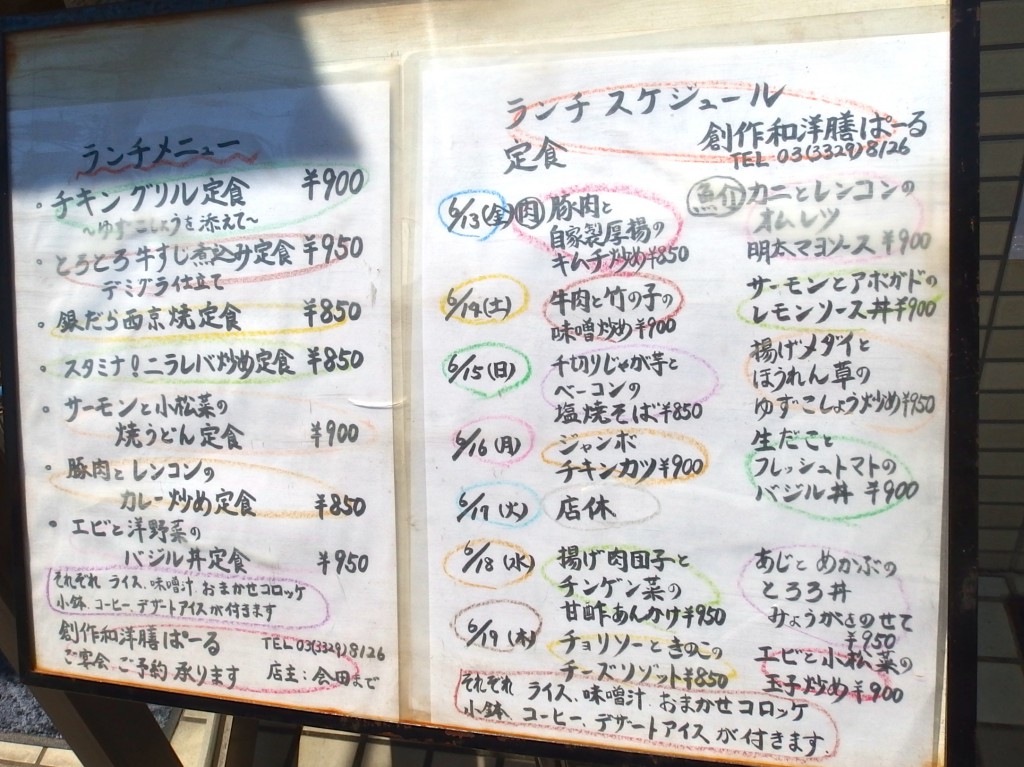 ランチメニュー
・チキングリル定食 ¥900
～ゆずこしょうを添えて～
・とろとろ牛すじ煮込み定食 ¥950
デミグラ仕立て
・銀だら西京焼定食 ¥850
・スタミナ!ニラレバ炒め定食 ¥850
・サーモンと小松菜の
焼うどん定食 ¥900
・豚肉とレンコンの
カレー炒め定食 ¥850
・エビと洋野菜の
バジル丼定食 ¥950
それぞれ ライス、味噌汁、おまかせコロッケ
小鉢、コーヒー、デザートアイスが付きます
創作和洋膳ぱーる TEL 03(3329)8126
ご宴会、ご予約承ります 店主:会田まで
ランチスケジュール
定食
創作和洋膳ぱーる
TEL 03(3329)8126
6/13(金) 肉 豚肉と
自家製厚揚の
キムチ炒め¥850
魚介 カニとレンコンの
オムレツ
明太マヨソース ¥900
6/14(土) 牛肉と竹の子の
味噌炒め ¥900
サーモンとアボガドの
レモンソース丼¥900
6/15(日) 千切りじゃが芋と
ベーコンの
塩焼そば¥850
揚げメダイと
ほうれん草の
ゆずこしょう炒め¥950
6/16(月) ジャンボ
チキンカツ¥900
生だこと
フレッシュトマトの
バジル丼 ¥900
6/17(火) 店休
6/18(水) 揚げ肉団子と
チンゲン菜の
甘酢あんかけ¥950
あじとめかぶの
とろろ丼
みょうがをのせて
¥950
6/19(木) チョリソーときのこの
チーズリゾット¥850
エビと小松菜の
玉子炒め ¥900
それぞれ ライス、味噌汁、おまかせコロッケ
小鉢、コーヒー、デザートアイスが付きます.